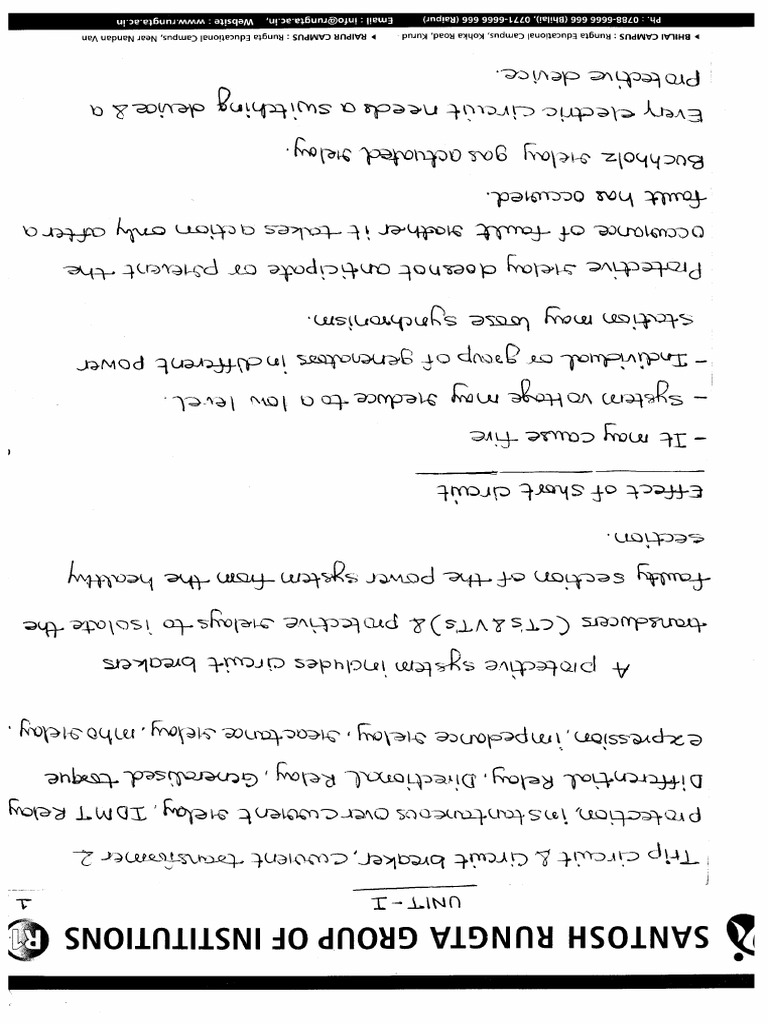 SANTOSH RUNGTA GROUP OF INSTITUTIONS R1
UNIT-I
1
Trip circuit & circuit breaker, current transformer &
protection, instantaneous over current relay, IDMT Relay
Differential Relay, Directional Relay, Generalised torque
expression, impedance relay, reactance relay, mho relay.
A protective system includes circuit breakers
transducers (CT's & VT's) & protective relays to isolate the
faulty section of the power system from the healthy
section.
Effect of short circuit
- It may cause fire
- System voltage may reduce to a low level.
- Individual or group of generators in different power
station may loose synchronism.
Protective relay doesnot anticipate or prevent the
occurance of fault rather it takes action only after a
fault has occurred.
Buchholz relay gas actuated relay.
Every electric circuit needs a switching device & a
Protective device.
BHILAI CAMPUS : Rungta Educational Campus, Kohka Road, Kurud
RAIPUR CAMPUS : Rungta Educational Campus, Near Nandan Van
Ph. : 0788-6666 666 (Bhilai), 0771-6666 666 (Raipur) Email : info@rungta.ac.in, Website : www.rungta.ac.in